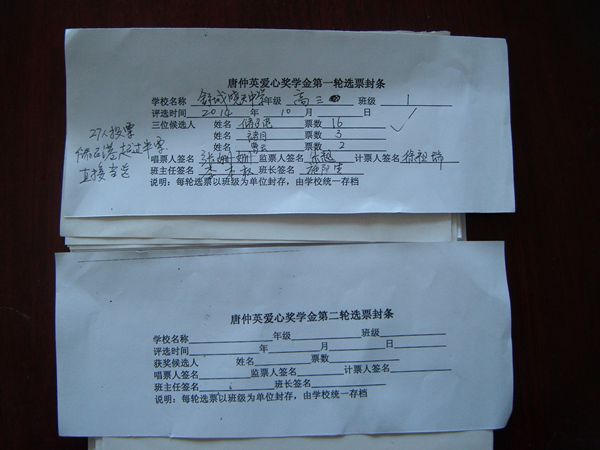 唐仲英爱心奖学金第一轮选票封条
学校名称 舒城晓天中学 年级 高三 班级 1
评选时间 2014 年 10 月 日
三位候选人 姓名 票数 16
姓名 票数 3
姓名 曹云 票数 2
唱票人签名 张姗姗 监票人签名 计票人签名
班主任签名 班长签名
说明：每轮选票以班级为单位封存，由学校统一存档
27人投票
超过半票
直接当选
唐仲英爱心奖学金第二轮选票封条
学校名称 年级 班级
评选时间 年 月 日
获奖候选人 姓名 票数
唱票人签名 监票人签名 计票人签名
班主任签名 班长签名
说明：每轮选票以班级为单位封存，由学校统一存档